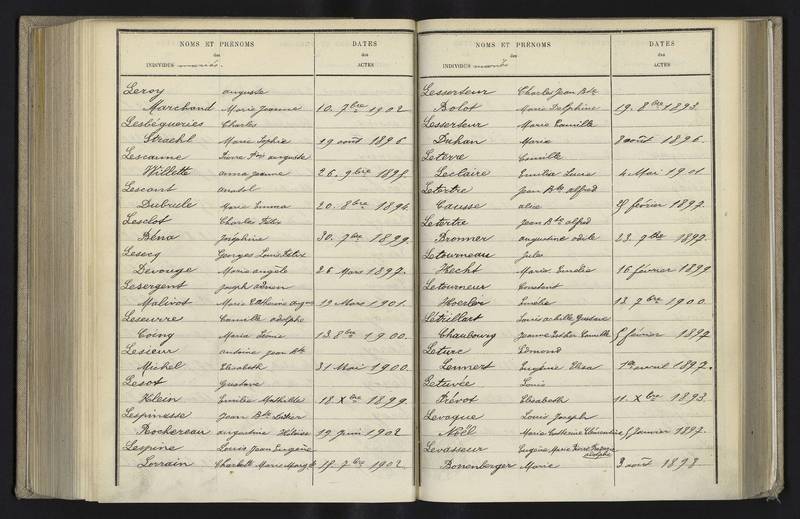 NOMS ET PRÉNOMS
des
INDIVIDUS mariés.
DATES
des
ACTES
Leroy auguste
Marchand Marie Jeanne 10. 7bre 1902
Lesbégueries Charles
Straehl Marie Sophie 29 août 1896
Lescanne auguste
Willette anna Jeanne 26. 9bre 1898.
Lescont anatol
Dubruele Marie Emma 20. 8bre 1896.
Lesclot Charles Félix
Béna Joséphine 30. 7bre 1899.
Lesecq Georges Louis Félix
Devouge Marie angèle 26 Mars 1897.
Lesergent Joseph adrien
Malivot Marie Catherine 19 Mars 1901.
Leseurre Camille adolphe
Coiny Marie Léonie 13. 8bre 1900.
Lesieur antoine Jean Bte
Michel Elisabeth 31 Mai 1900.
Lesot Gustave
Klein Emilie Mathilde 18. Xbre 1899.
Lespinesse Jean Bte
Rochereau augustine Héloïse 19 Juin 1902
Lespine Louis Jean Eugène
Lorrain Marie 17. 7bre 1902
NOMS ET PRÉNOMS
des
INDIVIDUS mariés
DATES
des
ACTES
Lesserteur Charles Jean Bte
Bolot Marie Delphine 19. 8bre 1893.
Lesserteur Marie Camille
Duhan Marie 8 août 1896.
Letevre Camille
Leclaire Emilie Laure 4 Mai 1901.
Letertre Jean Bte alfred
Causse alice février 1897.
Letertre Jean Bte alfred
Bronner augustine odile 23. 9bre 1897.
Letourneau Jules
Hecht Marie Emélie 16 février 1899
Letourneur Constant
Hoerler Emélie 13. 7bre 1900.
Létuillart Louis achille Gustave
Chaubourg Jeanne Esther Camille 5 février 1897
Leturc Edmond
Lennert Eugénie Elisa 1er avril 1897.
Letuvée Louis
Prévot Elisabeth 11. Xbre 1893.
Levaque Louis Joseph
Noël Marie Catherine Clémentine 5 Janvier 1897.
Levasseur Eugène Marie Pierre adolphe
Bonenberger Marie 3 août 1898